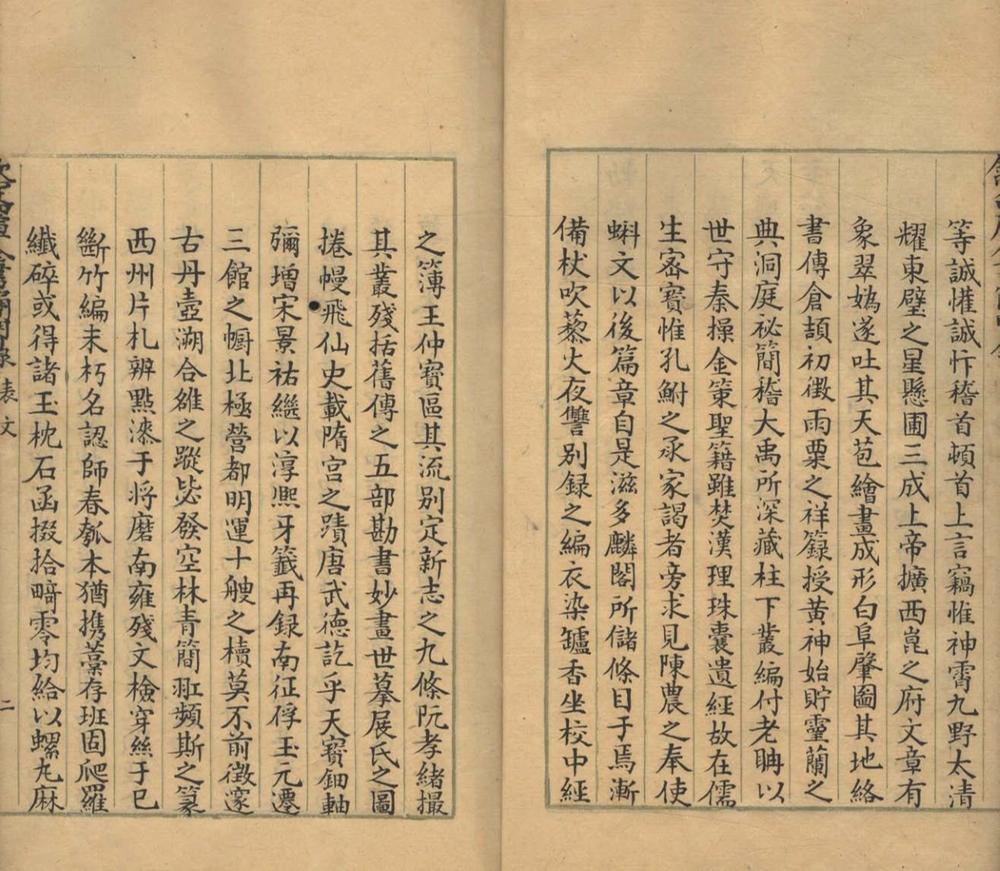 等誠惶誠忭稽首頓首上言竊惟神霄九野太清
耀東璧之星懸圃三成上帝擴西崑之府文章有
象翠嬀遂吐其天苞繪畫成形白阜肇圖其地絡
書傳倉頡初徴雨粟之祥籙授黄神始貯靈蘭之
典洞庭祕簡稽大禹所深藏柱下叢編付老聃以
世守秦操金策聖籍雖焚漢理珠囊遺經故在儒
生宻寳惟孔鮒之承家謁者旁求見陳農之奉使
蝌文以後篇章自是滋多麟閣所儲條目于焉漸
備杖吹藜火夜讐别録之編衣染爐香坐校中經
之簿王仲寳區其流别定新志之九條阮孝緒撮
其叢殘括舊傳之五部勘書妙畫世摹展氏之圖
捲幔飛仙史載隋宫之蹟唐武徳訖乎天寳鈿軸
彌增宋景祐繼以淳熙牙籤再録南征俘玉元遷
三館之㡡北極營都明運十艘之櫝莫不前徵邃
古丹壺溯合雒之蹤毖發空林青簡羾頻斯之篆
西州片札辨點漆于將磨南雍殘文檢穿絲于已
斷竹編未朽名認師春瓠本猶携藁存班固爬羅
纎碎或得諸玉枕石函掇拾畸零均給以螺丸麻
表文
二